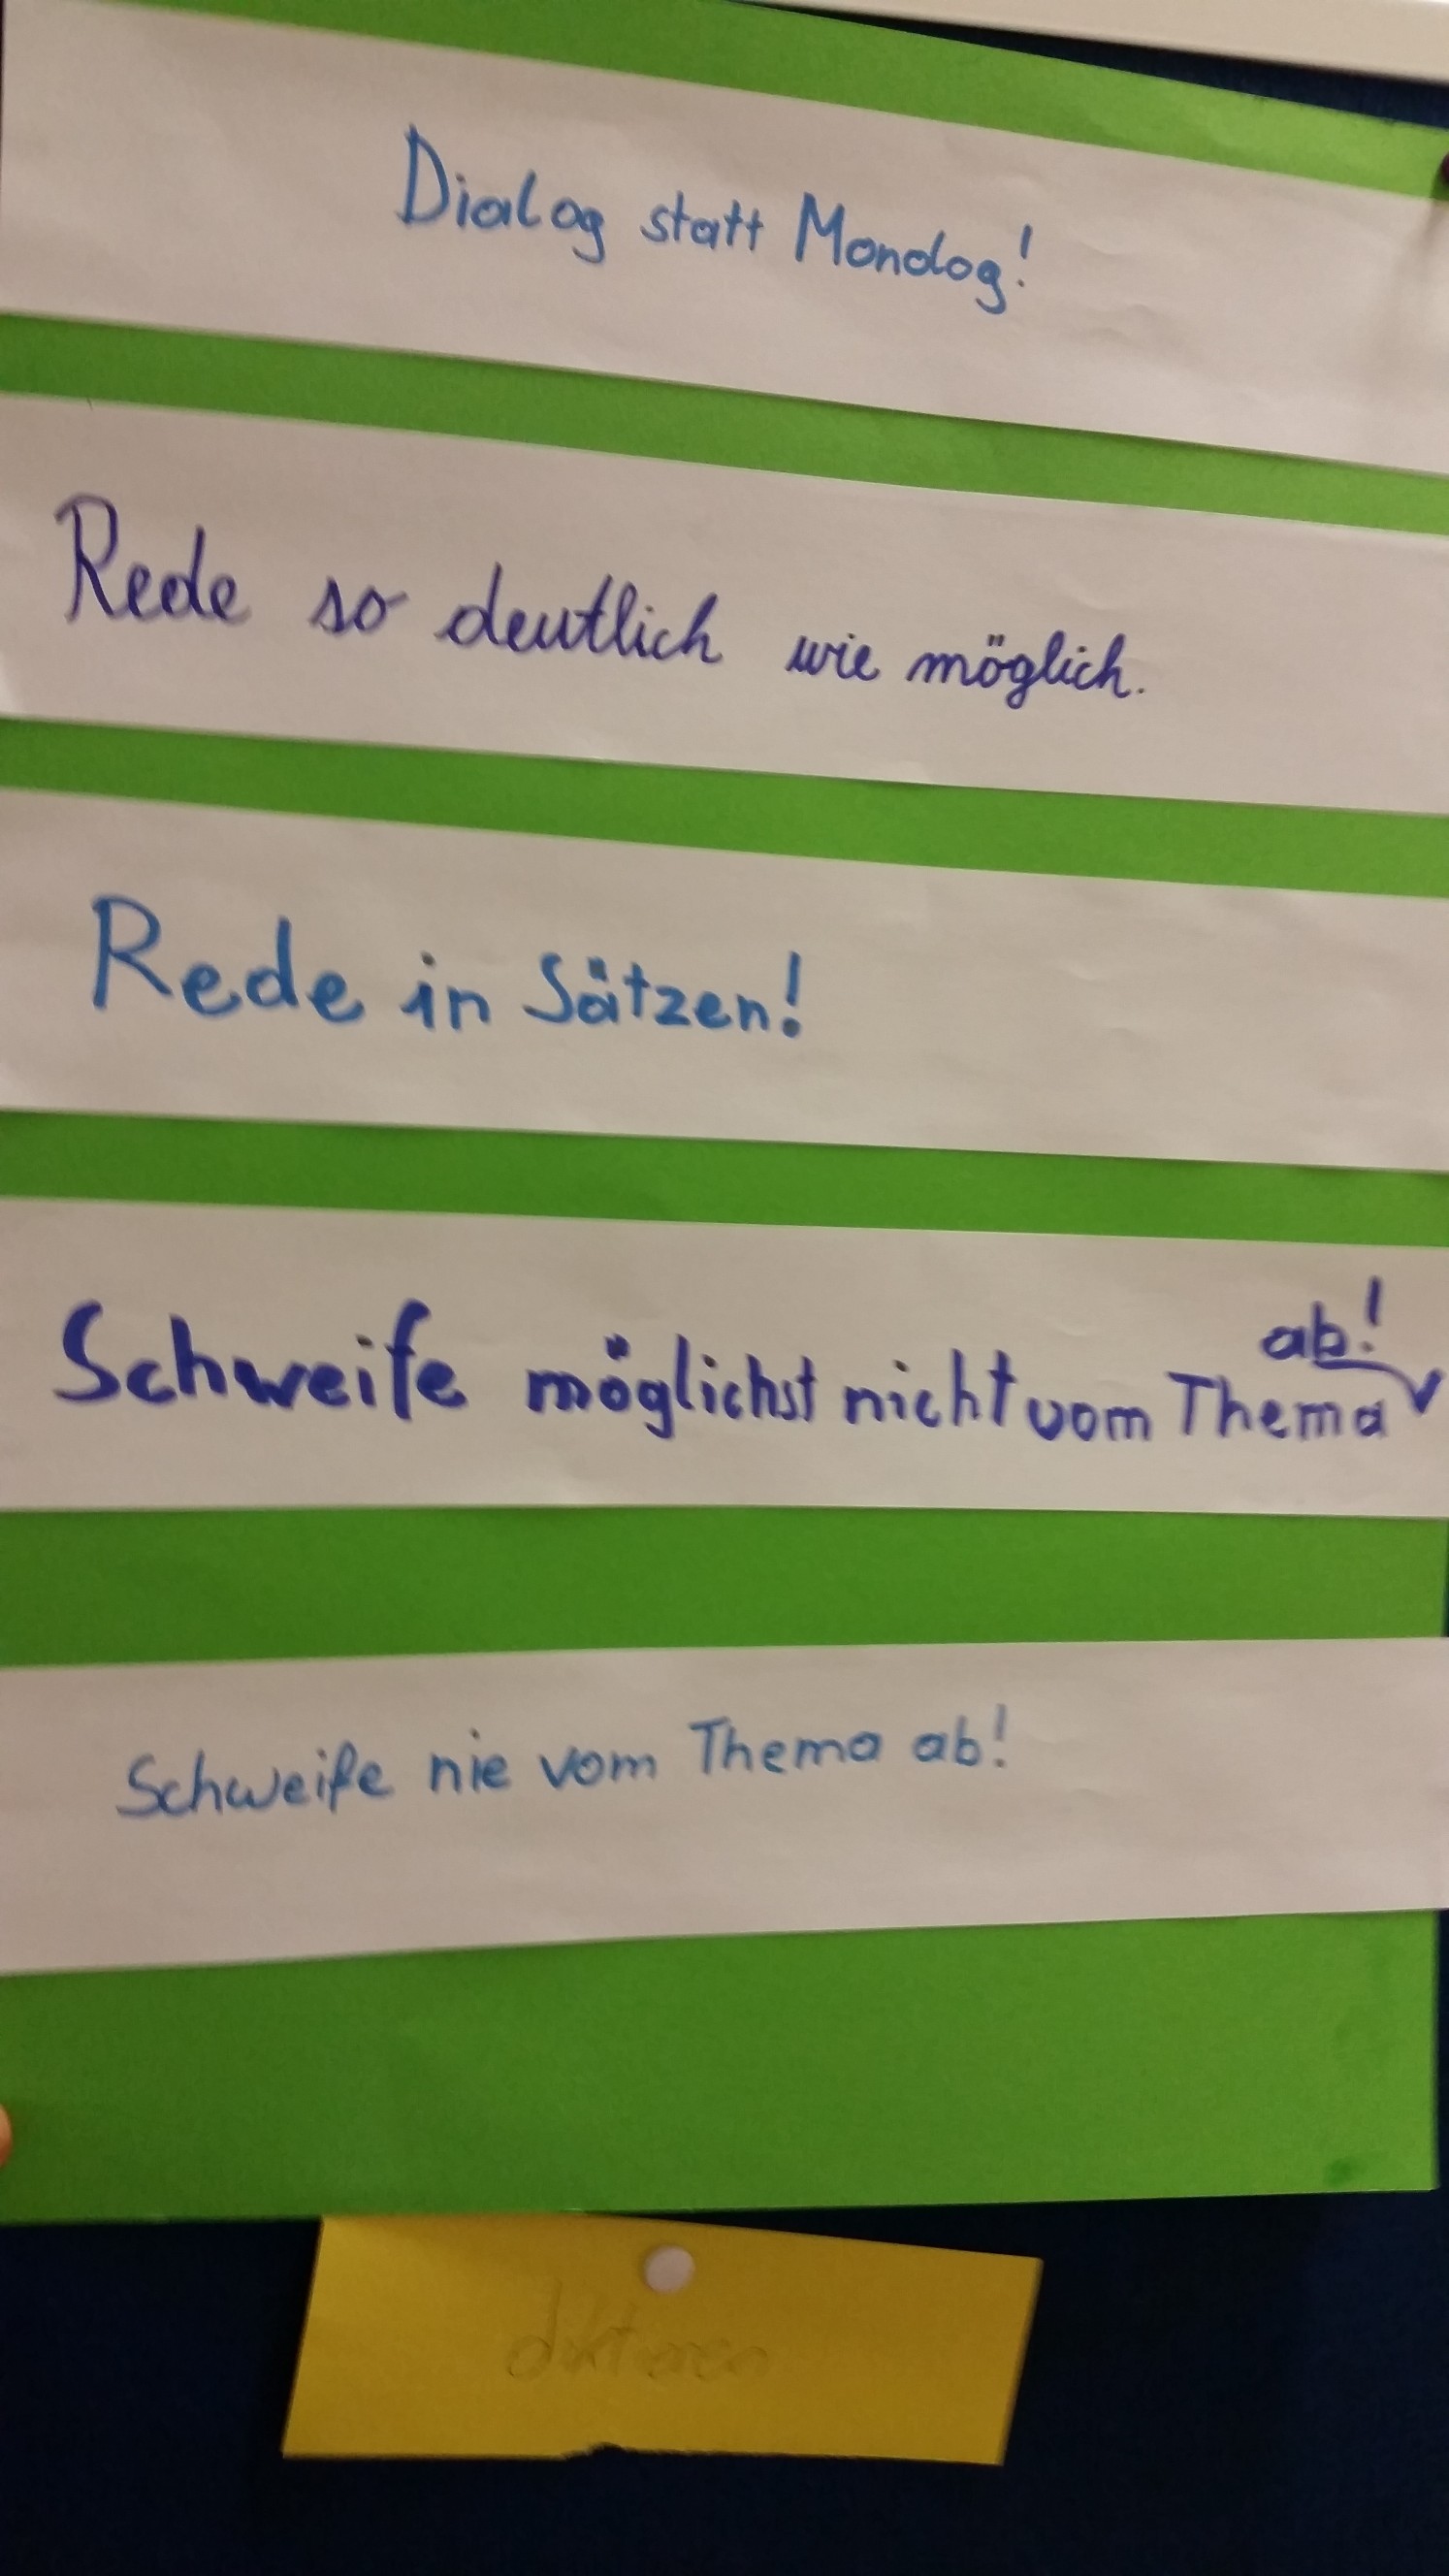 Dialog statt Monolog!
Rede so deutlich wie möglich.
Rede in Sätzen!
ab!
Schweife möglichst nicht vom Thema
Schweife nie vom Thema ab!
diktieren